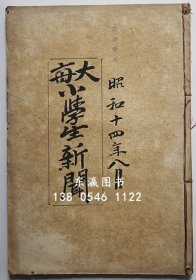 昭和十四年八月
大毎
小學生新聞
东瀛图书
138 0546 1122